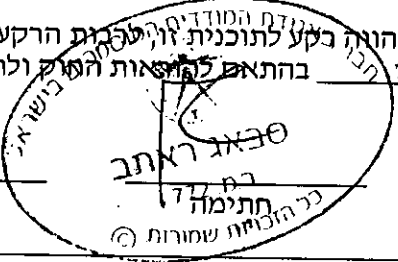 הווה רקע לתוכנית זו, לרבות הרקע
בהתאם להוראות החוק ולת
חבר אגודת המודדים המוסמכים בישראל
סבאג ראתב
חתימה
כל הזכויות שמורות ©